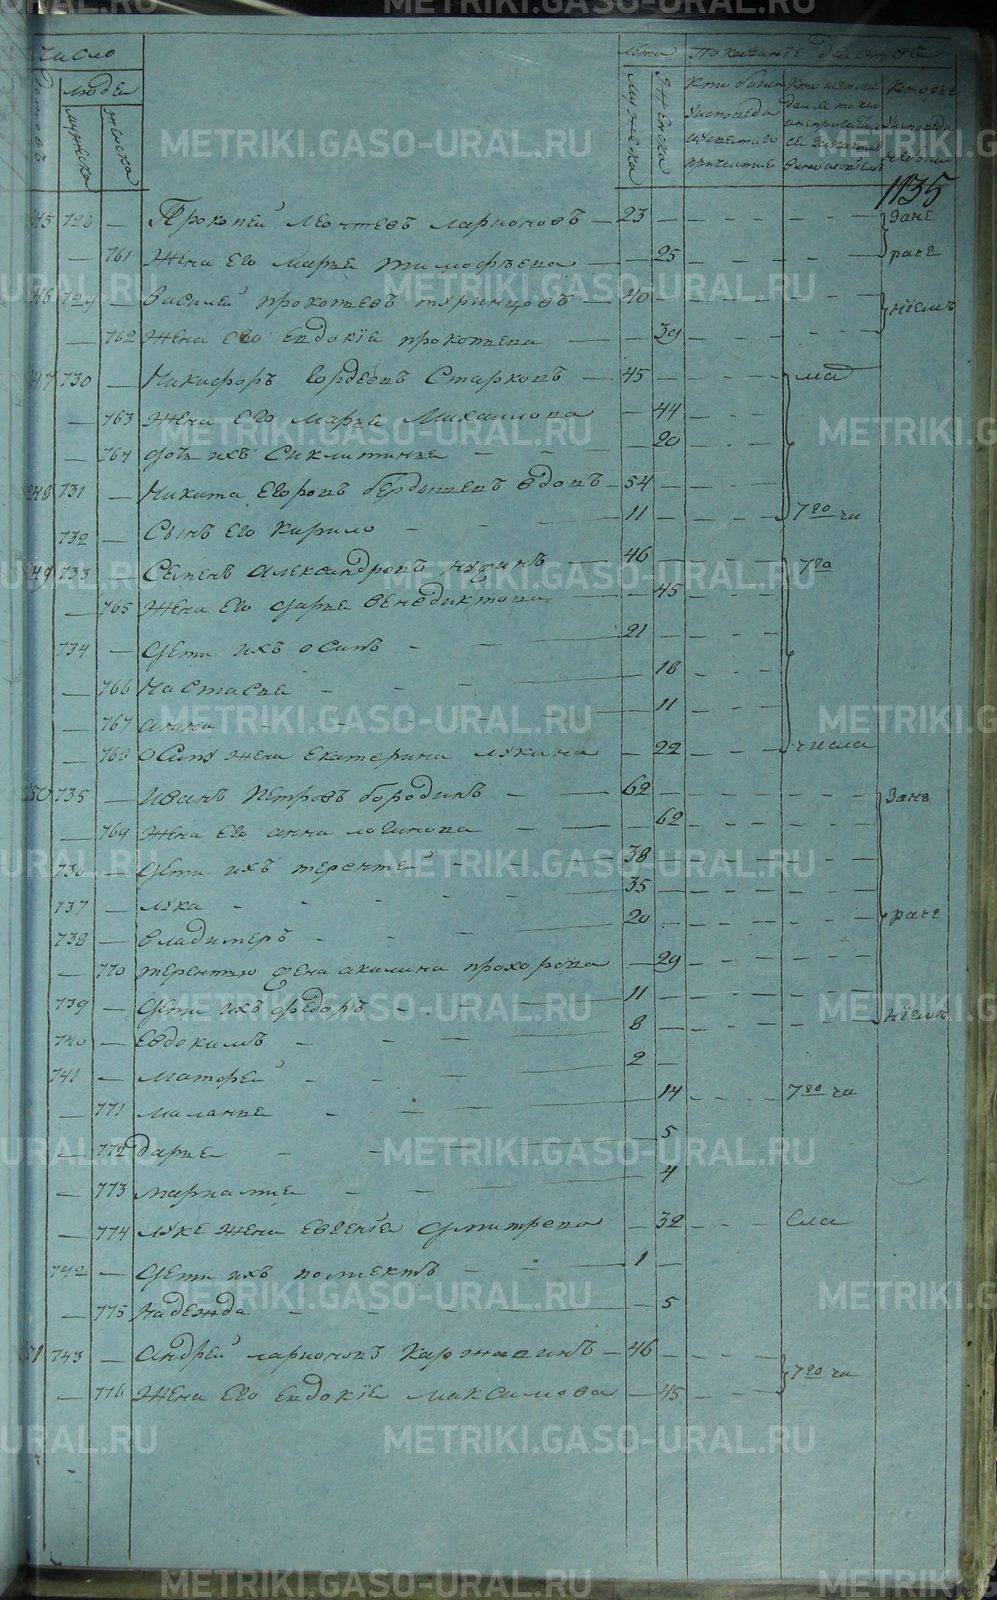 Число
Лета
Показанїе действа
людей
мужеска
женска
мужска
женска
Кто были
Исповеди
причастие
Которые
1135
245 728 — Прокопей Леонтевъ Ларионовъ — 23 — — — — — — — Зане
— 761 Жена Его Марье Тимофѣева — 25 — — — — — — раче
246 729 — Василей прокопьевъ Туринцовъ — 40 — — — — — — нїемъ
— 762 Жена Его Евдокїе прокопьева — 39 — — —
247 730 — Никифоръ Гордеевъ Старковъ — 45 — — — — ма
— 763 Жена Его Марье Михаилова — 44 — — —
— 764 дочь ихъ Сиклитинья — — — 20 — — —
248 731 — Никита Егоровъ вдовъ — 54 — — — —
732 — Сынъ Его Кирило — — — 11 — — — — 7го чи
249 733 — Семенъ Александровъ — 46 — — — — 7го
— 765 Жена Его дарье Венедиктова — 45 — — —
734 — Дети ихъ осипъ — — — 21 — — — —
— 766 Настасье — — — 18 — — —
— 767 анна — — — 11 — — —
— 768 Осипу жена Екатерина Лукина — 22 — — — числа
250 735 — Иванъ Петровъ бородинъ — — 62 — — — — — — — Зане
— 769 Жена Его анна логинова — — 62 — — — — — —
736 — Дети ихъ терентей — — — 38 — — — — — — —
737 — Лука — — — — 35 — — — — — — —
738 — Владимеръ — — — 20 — — — — — — — раче
— 770 терентью жена акилина прохорова — 29 — — — — — —
739 — Дети ихъ федоръ — — 11 — — — — — — —
740 — Евдокимъ — — — 8 — — — — — — — нїемъ
741 — Матфей — — — 2 —
— 771 Маланье — — — 14 — — — 7го чи
— 772 дарье — — — 5
— 773 мариамие — — — 4
— 774 Луке жена Евгенїе Дмитрева — 32 — — — сла
742 — Дети ихъ полиектъ — — — 1 —
— 775 Надежда — — — — 5
251 743 — Андрей ларионовъ Каржавинъ — 46 — — — — 7го чи
— 776 Жена Его Евдокїе Максимова — 45 — — —
METRIKI.GASO-URAL.RU